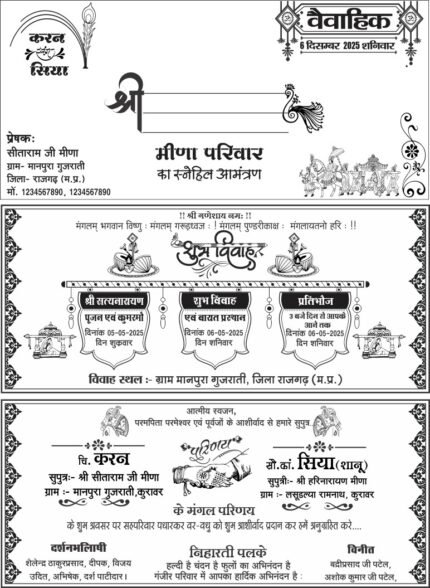 करन
संग
सिया
वैवाहिक
6 दिसम्बर 2025 शनिवार
श्री
प्रेषक:
सीताराम जी मीणा
ग्राम- मानपुरा गुजराती
जिला- राजगढ़ (म.प्र.)
मों. 1234567890, 1234567890
मीणा परिवार
का स्नेहिल आमंत्रण
!! श्री गणेशाय नमः !!
मंगलम् भगवान विष्णु : मंगलम् गरूड़ध्वज : ! मंगलम् पुण्डरीकाक्ष : मंगलायतनो हरि : !!
शुभ विवाह
श्री सत्यनारायण
पूजन एवं कुमरमो
दिनांक 05-05-2025
दिन शुक्रवार
शुभ विवाह
एवं बारात प्रस्थान
दिनांक 06-05-2025
दिन शनिवार
प्रतिभोज
3 बजे दिन से आपके
आने तक
दिनांक 06-05-2025
दिन शनिवार
विवाह स्थल :- ग्राम मानपुरा गुजराती, जिला राजगढ़ (म.प्र.)
आत्मीय स्वजन,
परमपिता परमेश्वर एवं पूर्वजों के आशीर्वाद से हमारे सुपुत्र
चि. करन
सुपुत्रः- श्री सीताराम जी मीणा
ग्राम :- मानपुरा गुजराती,कुरावर
परिणय
सौ.कां. सिया(शानू)
सुपुत्रीः- श्री हरिनारायण मीणा
ग्राम :- लसूडल्या रामनाथ, कुरावर
के मंगल परिणय
के शुभ अवसर पर सहपरिवार पधारकर वर-वधु को शुभ आशीर्वाद प्रदान कर हमें अनुग्रहित करे....
दर्शनभलािषी
शैलेन्द्र ठाकुरप्रसाद, दीपक, विजय
उदित, अभिषेक, दर्श पाटीदार।
निहारती पलके
हल्दी है चंदन है फुलों का अभिनंदन है
गंजीर परिवार में आपका हार्दिक अभिनंदन है :
विनीत
बद्रीप्रसाद जी पटेल,
अशोक कुमार जी पटेल,